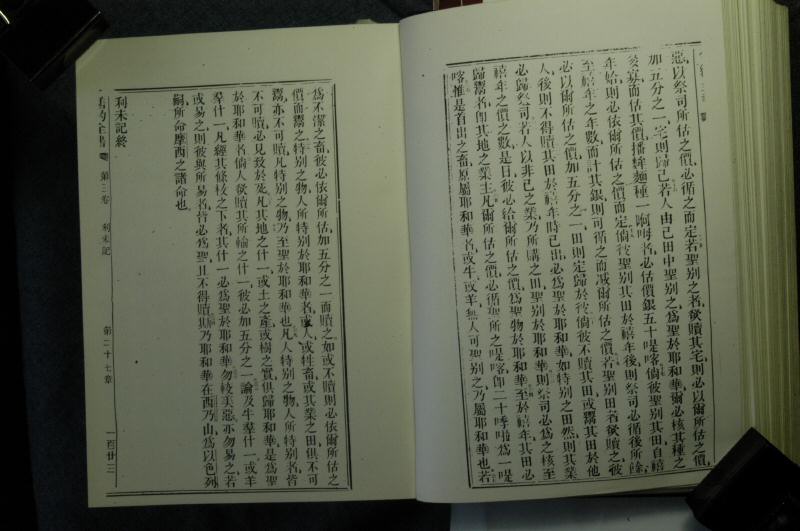 惡以祭司所估之價必循之而定若聖別之者欲贖其宅則必以爾所估之價
加五分之一宅則歸己若人由己田中聖別之爲聖於耶和華爾必核其種之
年始則必依爾所估之價而定倘從聖別其田於禧年後則祭司必循後所餘
至禧年之年數而計其銀則可循之而減爾所估之價若聖別田者欲贖之彼
必以爾所估之價加五分之一田則定歸於彼倘彼不贖其田或鬻其田於他
人後則不得贖其田於禧年時已出必爲聖於耶和華如特別之田然則其業
必歸祭司若人以非己之業乃所購之田聖別於耶和華則祭司必爲之核至
禧年之價之數是日彼必給爾所估之價爲聖物於耶和華至於禧年其田必
歸鬻者卽其地之業主凡爾所估之價必循聖所之㖷喀卽二十㖸啦爲一㖷
喀惟是首出之畜原屬耶和華者或牛或羊無人可聖別之乃屬耶和華也若
爲不潔之畜彼必依爾所估加五分之一而贖之如或不贖則必依爾所估之
價而鬻之特別之物人所特別於耶和華者或人或牲畜或其業之田俱不可
鬻亦不可贖凡特別之物乃至聖於耶和華也凡人特別之物人所特別者皆
不可贖必見致於死凡其地之什一或土之產或樹之實俱歸耶和華是爲聖
於耶和華者倘人欲贖其所輸之什一彼必加五分之一論及牛羣什一或羊
羣什一凡經其條杖之下者其什一必爲聖於耶和華勿較美惡亦勿易之若
或易之則彼與所易者皆必爲聖且不得贖其乃耶和華在西乃山爲以色列
嗣所命摩西之諸命也
利未記終
第三卷 利未記 第二十七章 一百廿三